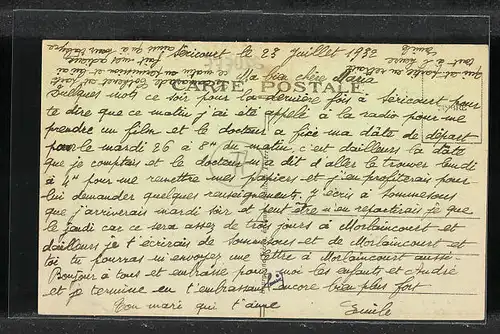 Séricourt le 23 Juillet 1932
Ma bien chère Maria
CARTE POSTALE
Quelques mots ce soir pour la dernière fois à Séricourt pour
te dire que ce matin j'ai été appelé à la radio pour me
prendre un film et le docteur a fixé ma date de départ
pour le mardi 26 à 8h du matin, c'est d'ailleurs la date
que je comptais et le docteur m'a dit d'aller le trouver lundi
à 4h pour me remettre mes papiers et j'en profiterais pour
lui demander quelques renseignements, j'écris à Sommesous
que j'arriverais mardi soir et peut être n'en repartirais je que
le jeudi car ce sera assez de trois jours à Morlaincourt et
d'ailleurs je t'écrirais de Sommesous et de Morlaincourt et
toi tu pourras m'envoyer une lettre à Morlaincourt aussi.
Bonjour à tous et embrasse pour moi les enfants et André
et je termine en t'embrassant encore bien plus fort
Ton mari qui t'aime Emile